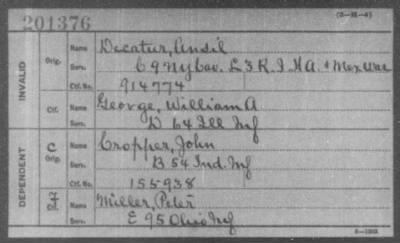 (3-252-b)
201376
INVALID
Orig. Name Decatur, Ansil
Serv. C 9 NY Cav. L 3 R.I.H.A. & Mex War
Ctf. No. 914774
Ctf. Name George, William A
Serv. D 64 Ill Inf
DEPENDENT
C Orig. Name Cropper, John
Serv. B 54 Ind. Inf
Ctf. No. 155938
Ctf. Name Miller, Peter
Serv. E 95 Ohio Inf